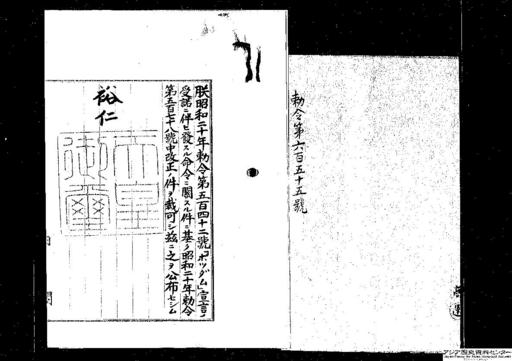 勅令第六百五十五號
朕昭和二十年勅令第五百四十二號「ポツダム」宣言ノ
受諾ニ伴ヒ發スル命令ニ關スル件ニ基ク昭和二十年勅令
第五百七十八號中改正ノ件ヲ裁可シ茲ニ之ヲ公布セシム
裕仁
天皇
御璽
アジア歴史資料センター